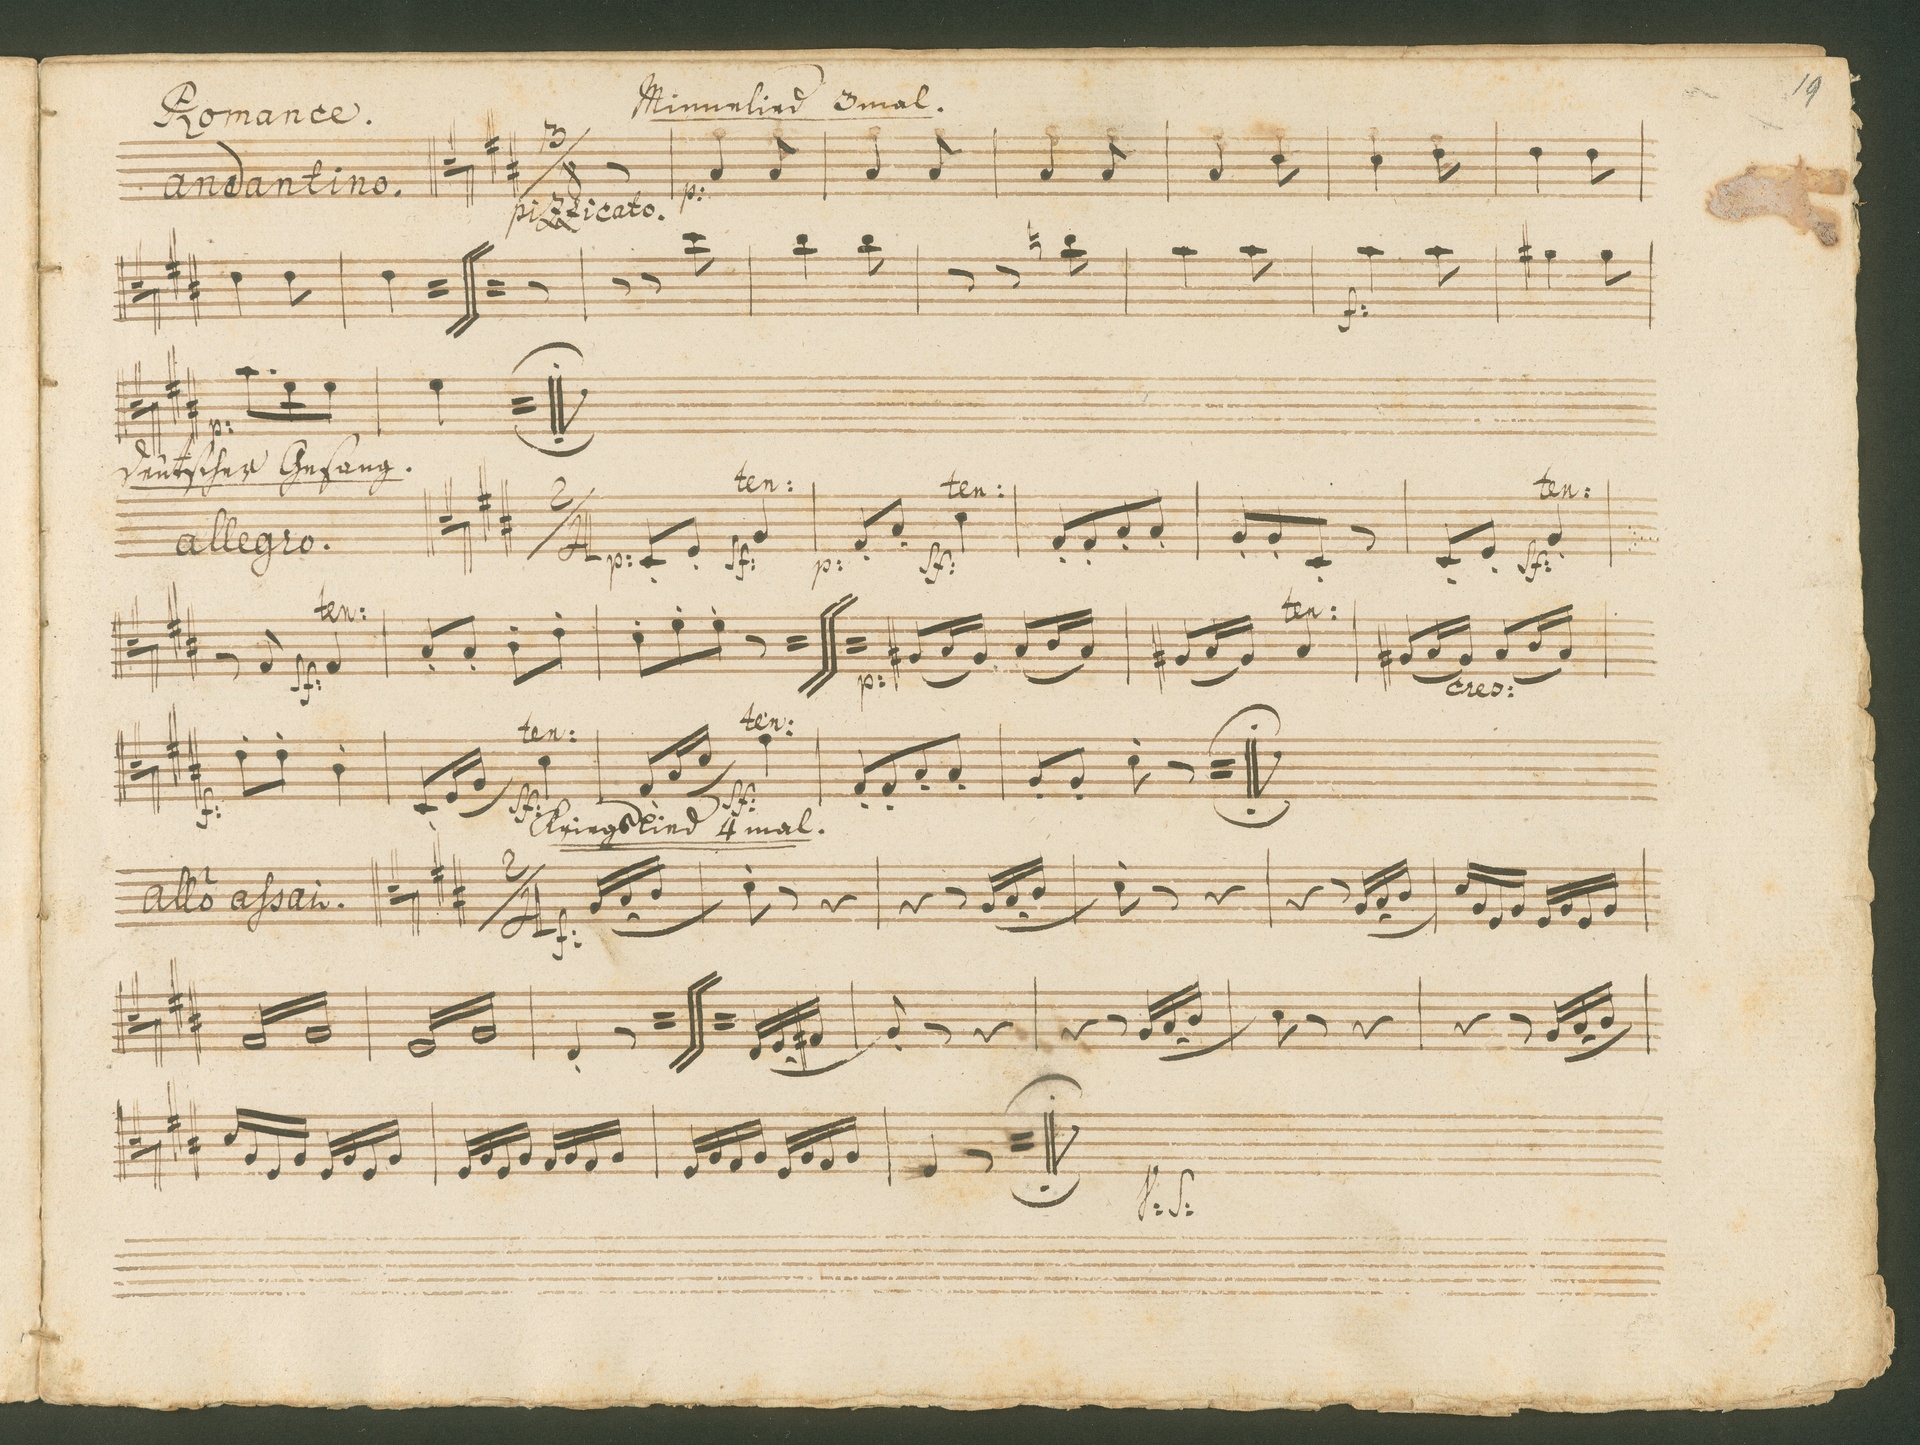 19
Romance. Minnelied 3mal.
andantino. 3/8 p:
pizzicato.
f:
p:
deutscher Gesang.
ten: ten: ten:
allegro. 2/4 p: sf: p: sf: sf:
ten: ten:
sf: p: cres:
ten: ten:
f: sf: sf:
Kriegslied 4mal.
allo assai. 2/4 f:
V: S: